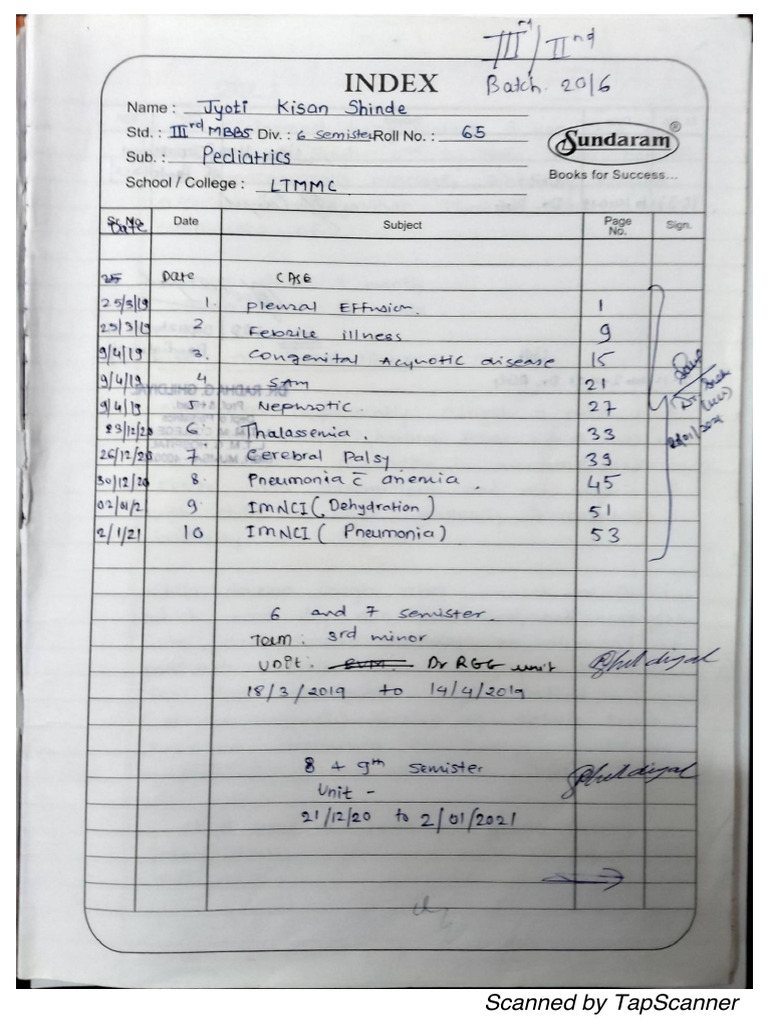 IIIrd/IInd
Batch. 2016
INDEX
Name : Jyoti Kisan Shinde
Std. : IIIrd MBBS Div. : 6 semister Roll No. : 65
Sub. : Pediatrics
School / College : LTMMC
Sundaram®
Books for Success...
Sr. No. Date Date Subject Page No. Sign.
25 Date CASE
25/3/19 1. Pleural Effusion. 1
29/3/19 2 Febrile illness 9
9/4/19 3. Congenital Acynotic disease 15
9/4/19 4. SAM 21
9/4/19 5 Nephrotic. 27
23/12/20 6. Thalassemia. 33
26/12/20 7 Cerebral Palsy 39
30/12/20 8. Pneumonia c̄ anemia. 45
02/01/2 9. IMNCI (Dehydration) 51
2/1/21 10 IMNCI ( Pneumonia) 53
DR RADHA G. GHILDIYAL
6 and 7 semister.
Team : 3rd minor
Unit : Dr RGG unit Ghildiyal
18/3/2019 to 14/4/2019
8 + 9th semister
Unit - Ghildiyal
21/12/20 to 2/01/2021
Scanned by TapScanner